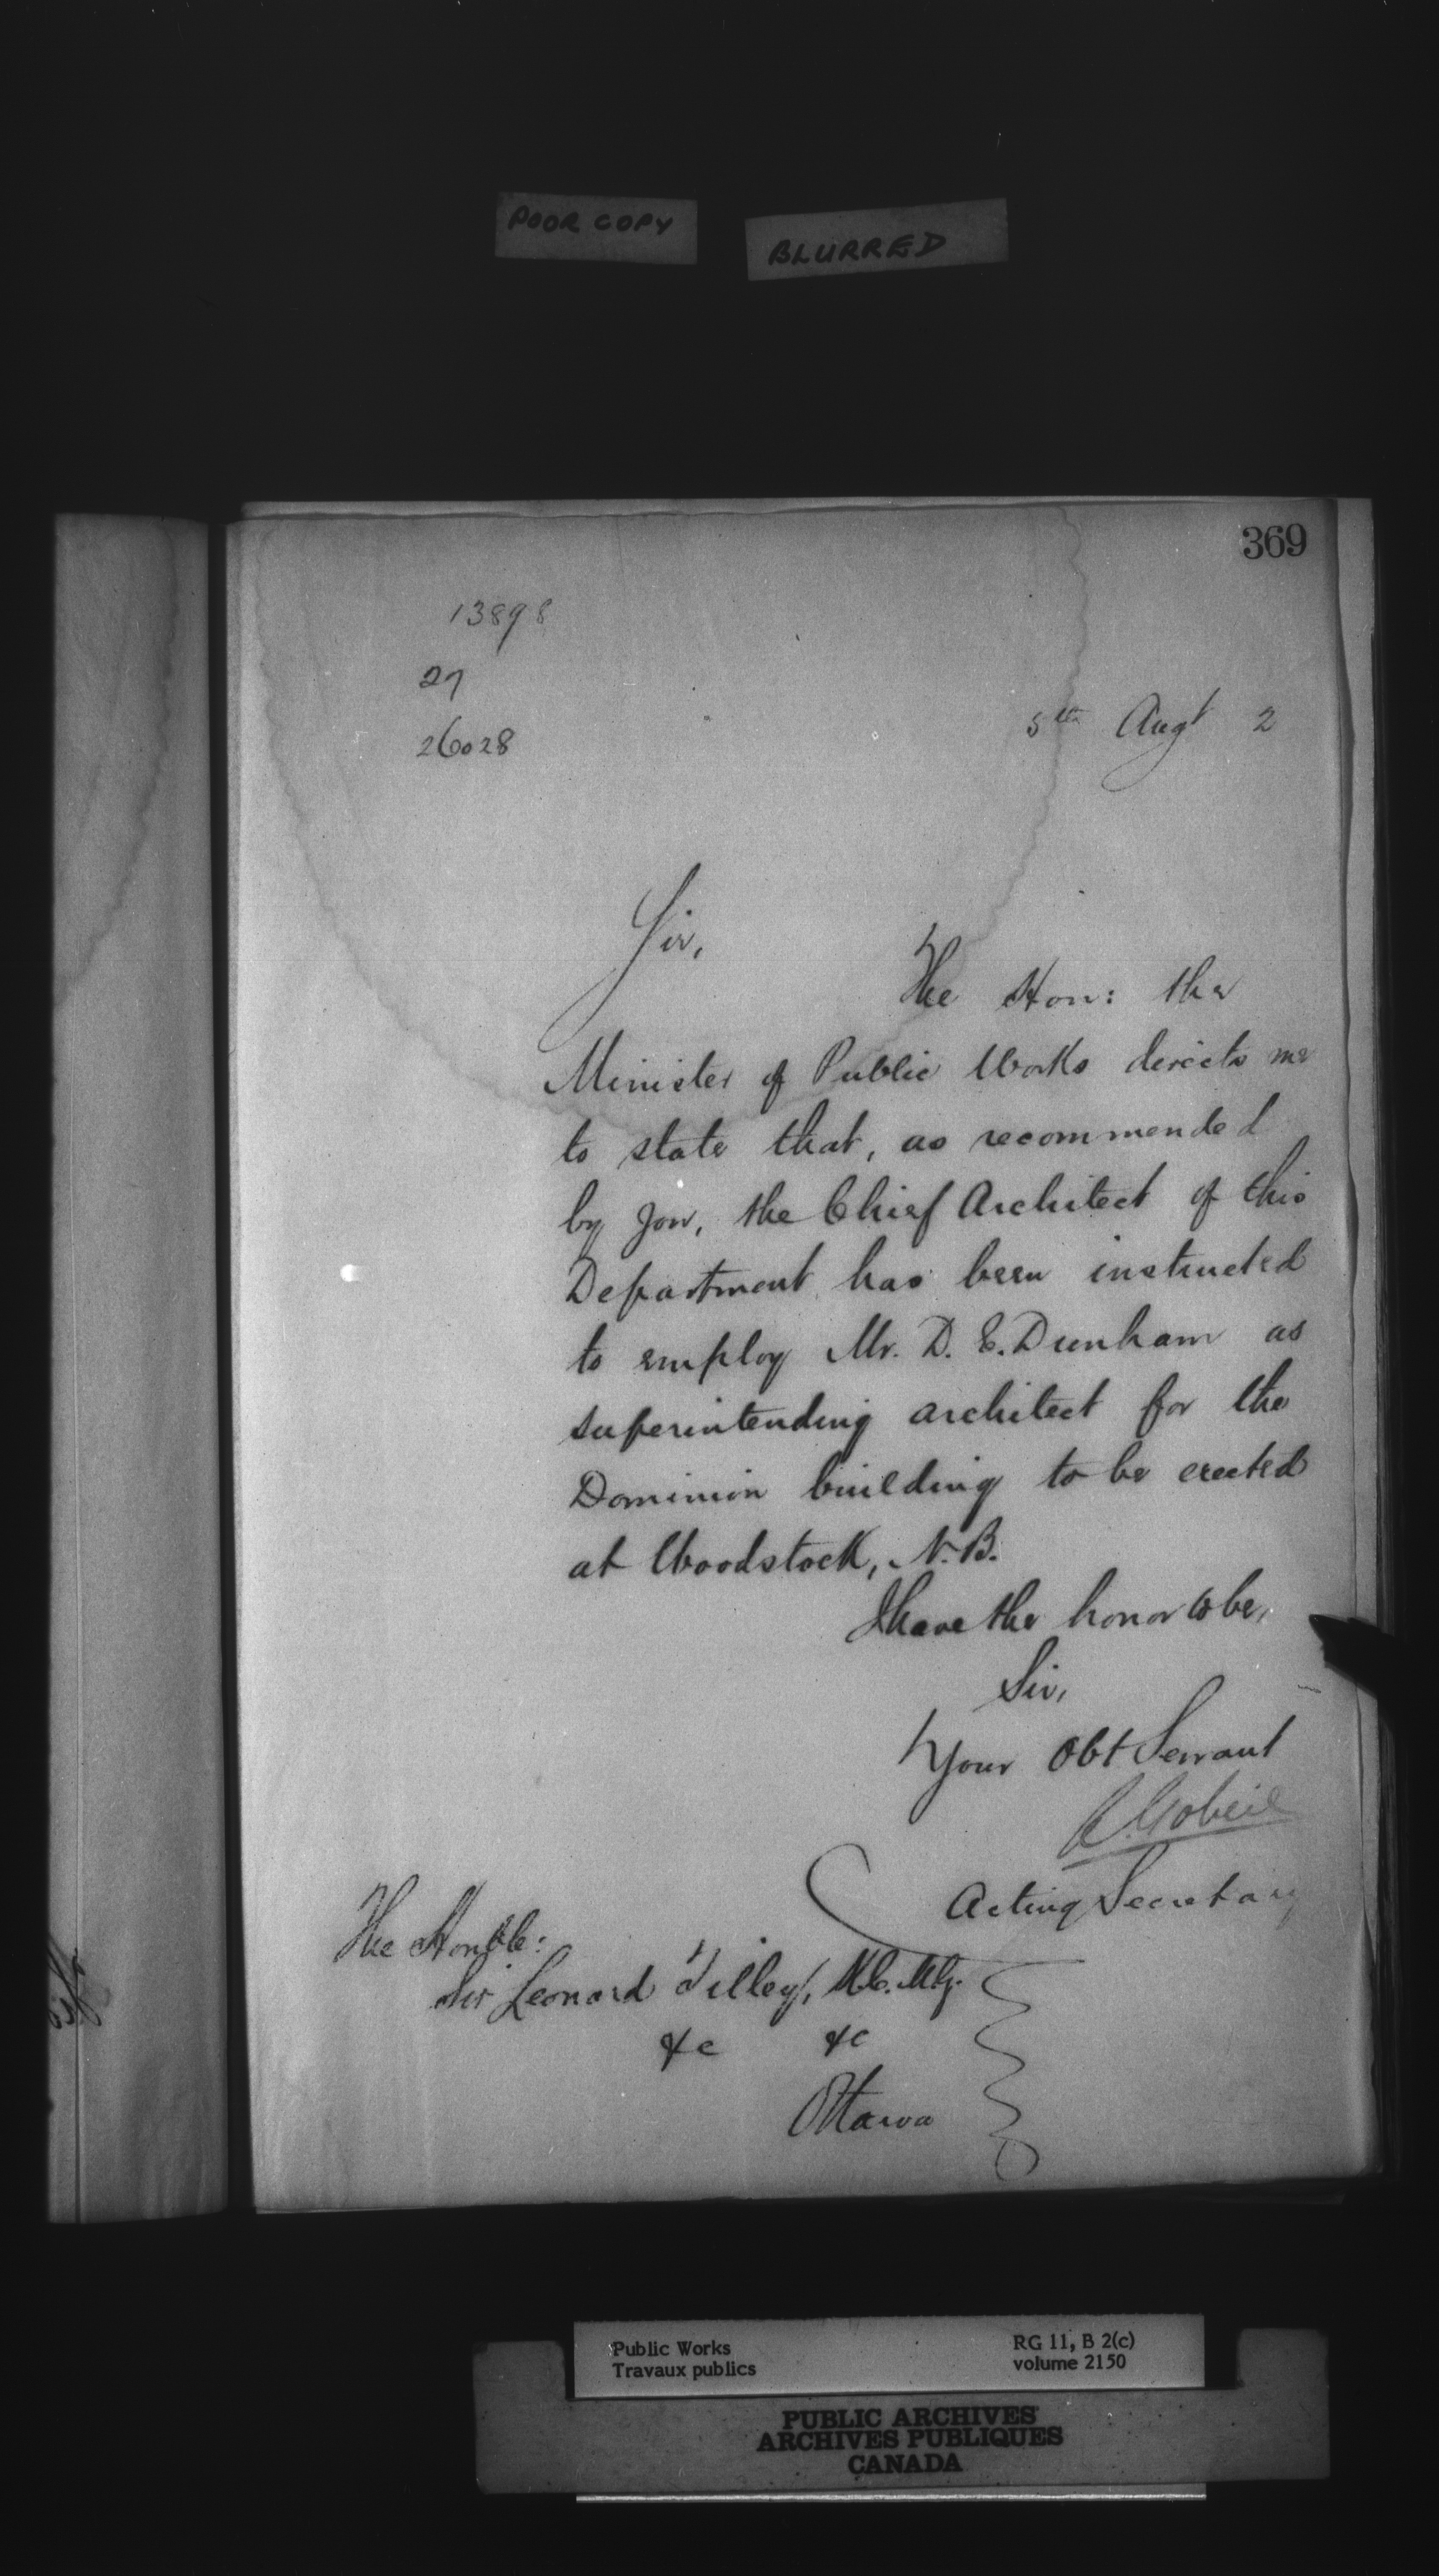 POOR COPY
BLURRED
369
13898
27
26028
5th Augt 2
Sir,
The Hon: the
Minister of Public Works directs me
to state that, as recommended
by you, the Chief Architect of this
Department has been instructed
to employ Mr. D. E. Dunham as
superintending architect for the
Dominion building to be erected
at Woodstock, N.B.
I have the honor to be,
Sir,
Your Obt Servant
A. Gobeil
Acting Secretary
The Honble:
Sir Leonard Tilley, K.C.M.G.
&c &c
Ottawa
Public Works
Travaux publics
RG 11, B 2(c)
volume 2150
PUBLIC ARCHIVES
ARCHIVES PUBLIQUES
CANADA